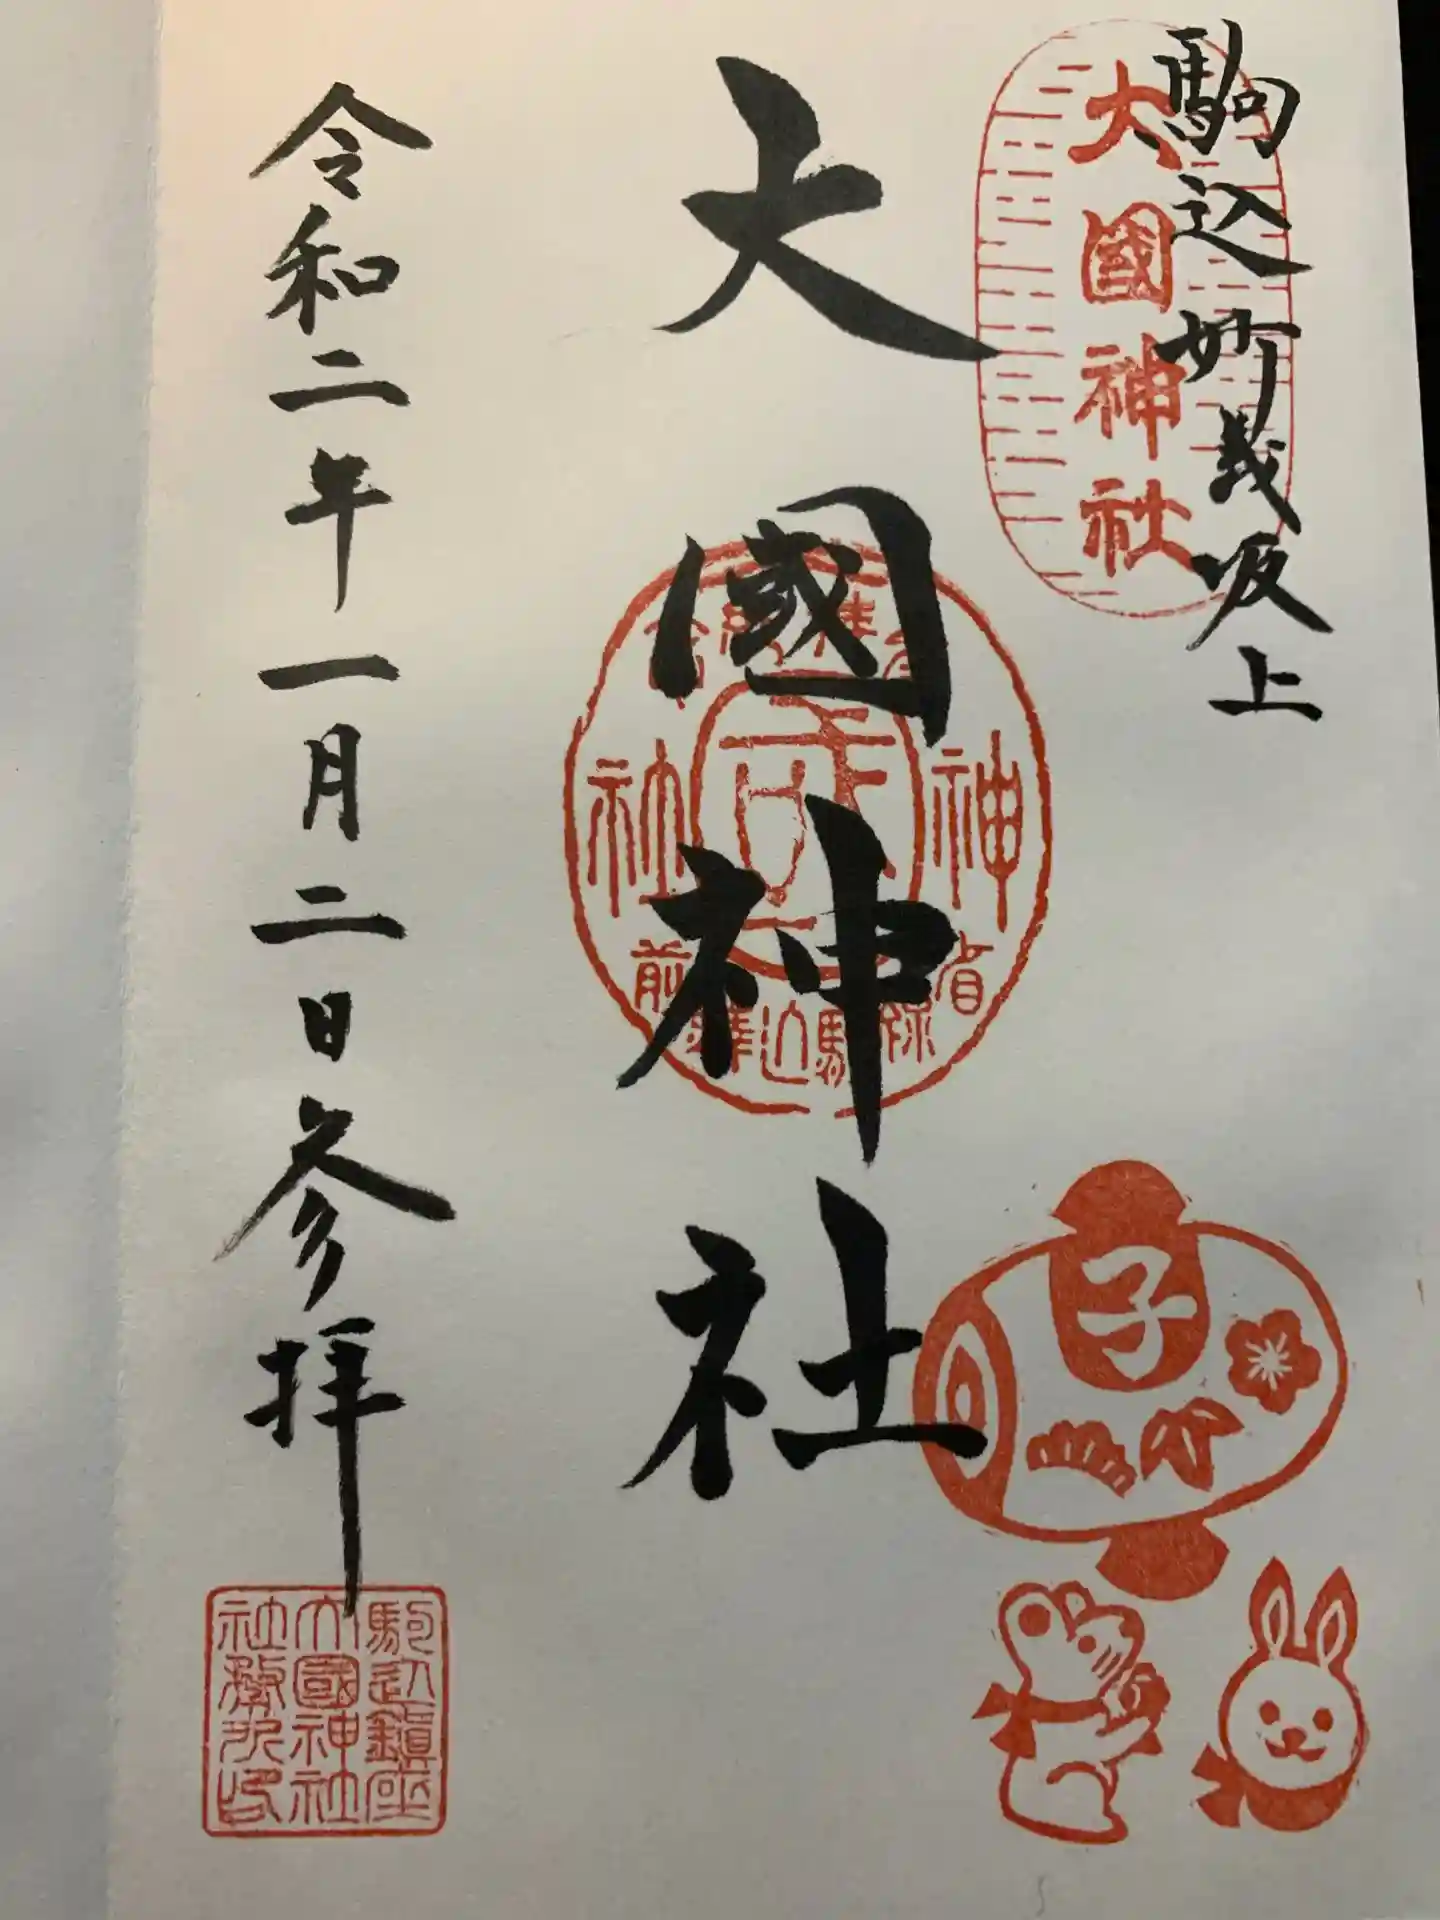 駒込妙義坂上
大國神社
大國神社
令和二年一月二日参拝
子
神社
駒込鎮座
大國神社
社務所印